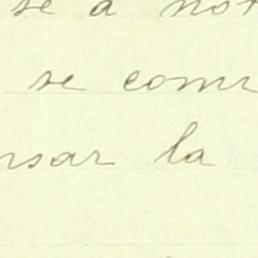 se a not
se comu
nsar la